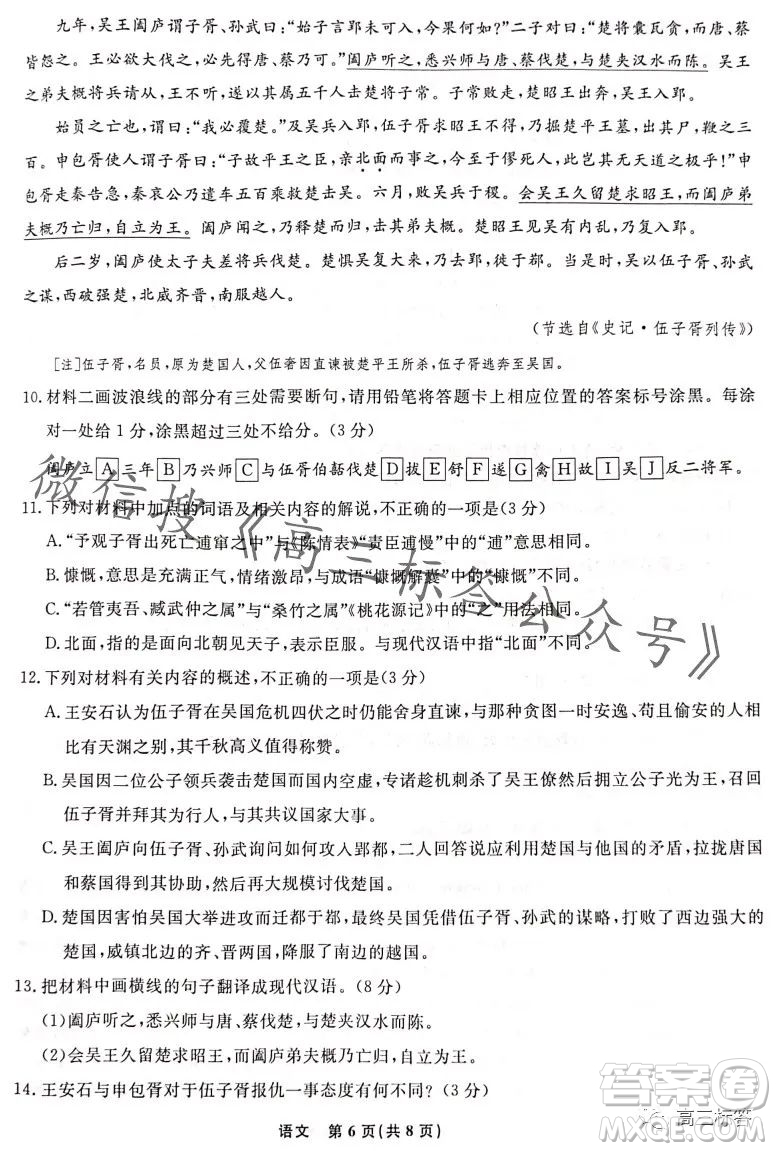 九年，吴王阖庐谓子胥、孙武曰：“始子言郢未可入，今果何如？”二子对曰：“楚将囊瓦贪，而唐、蔡
皆怨之。王必欲大伐之，必先得唐、蔡乃可。”阖庐听之，悉兴师与唐、蔡伐楚，与楚夹汉水而陈。吴王
之弟夫概将兵请从，王不听，遂以其属五千人击楚将子常。子常败走，楚昭王出奔，吴王入郢。
始员之亡也，谓曰：“我必覆楚。”及吴兵入郢，伍子胥求昭王不得，乃掘楚平王墓，出其尸，鞭之三
百。申包胥使人谓子胥：“子故平王之臣，亲北面而事之，今至于僇死人，此岂其无天道之极乎！”申
包胥走秦告急，秦哀公乃遣车五百乘救楚击吴。六月，败吴兵于稷。会吴王久留楚求昭王，而阖庐弟
夫概乃亡归，自立为王。阖庐闻之，乃释楚而归，击其弟夫概。楚昭王见吴有内乱，乃复入郢。
后二岁，阖庐使太子夫差将兵伐楚。楚惧吴复大来，乃去郢，徙于鄀。当是时，吴以伍子胥、孙武
之谋，西破强楚，北威齐晋，南服越人。
（节选自《史记·伍子胥列传》）
[注]伍子胥，名员，原为楚国人，父伍奢因直谏被楚平王所杀，伍子胥逃至吴国。
10.材料二画波浪线的部分有三处需要断句，请用铅笔将答题卡上相应位置的答案标号涂黑。每涂
对一处给1分，涂黑超过三处不给分。（3分）
阖庐立A三年B乃兴师C与伍胥伯嚭伐楚D拔E舒F遂G禽H故I吴J反二将军。
11.下列对材料中加点的词语及相关内容的解说，不正确的一项是（3分）
A.“予观子胥出死亡逋窜之中”与《陈情表》“责臣逋慢”中的“逋”意思相同。
B.慷慨，意思是充满正气，情绪激昂，与成语“慷慨解囊”中的“慷慨”意思不同。
C.“若管夷吾、臧武仲之属”与“桑竹之属”《桃花源记》中的“之”用法相同。
D.北面，指的是向北朝见天子，表示臣服。与现代汉语中“北面”不同。
12.下列对材料有关内容的概述，不正确的一项是（3分）
A.王安石认为伍子胥在吴国危机四伏之时仍能舍身直谏，与那种贪图一时安逸、苟且偷安的人相
比有天渊之别，其千秋高义值得称赞。
B.吴国因二位公子领兵袭击楚国而国内空虚，专诸趁机刺杀了吴王僚然后拥立公子光为王，召回
伍子胥并拜其为行人，与其共议国家大事。
C.吴王阖庐向伍子胥、孙武询问如何攻入郢都，二人回答说应利用楚国与他国的矛盾，拉拢唐国
和蔡国得到其协助，然后再大规模讨伐楚国。
D.楚国因害怕吴国大举进攻而迁都于鄀，最终吴国凭借伍子胥、孙武的谋略，打败了西边强大的
楚国，威镇北边的齐、晋两国，降服了南边的越国。
13.把材料中画横线的句子翻译成现代汉语。（8分）
（1）阖庐听之，悉兴师与唐、蔡伐楚，与楚夹汉水而陈。
（2）会吴王久留楚求昭王，而阖庐弟夫概乃亡归，自立为王。
14.王安石与申包胥对于伍子胥报仇一事态度有何不同？（3分）
语文 第6页（共8页）
微信搜《高三标答公众号》
高三标答
答案圈
MXQE.COM